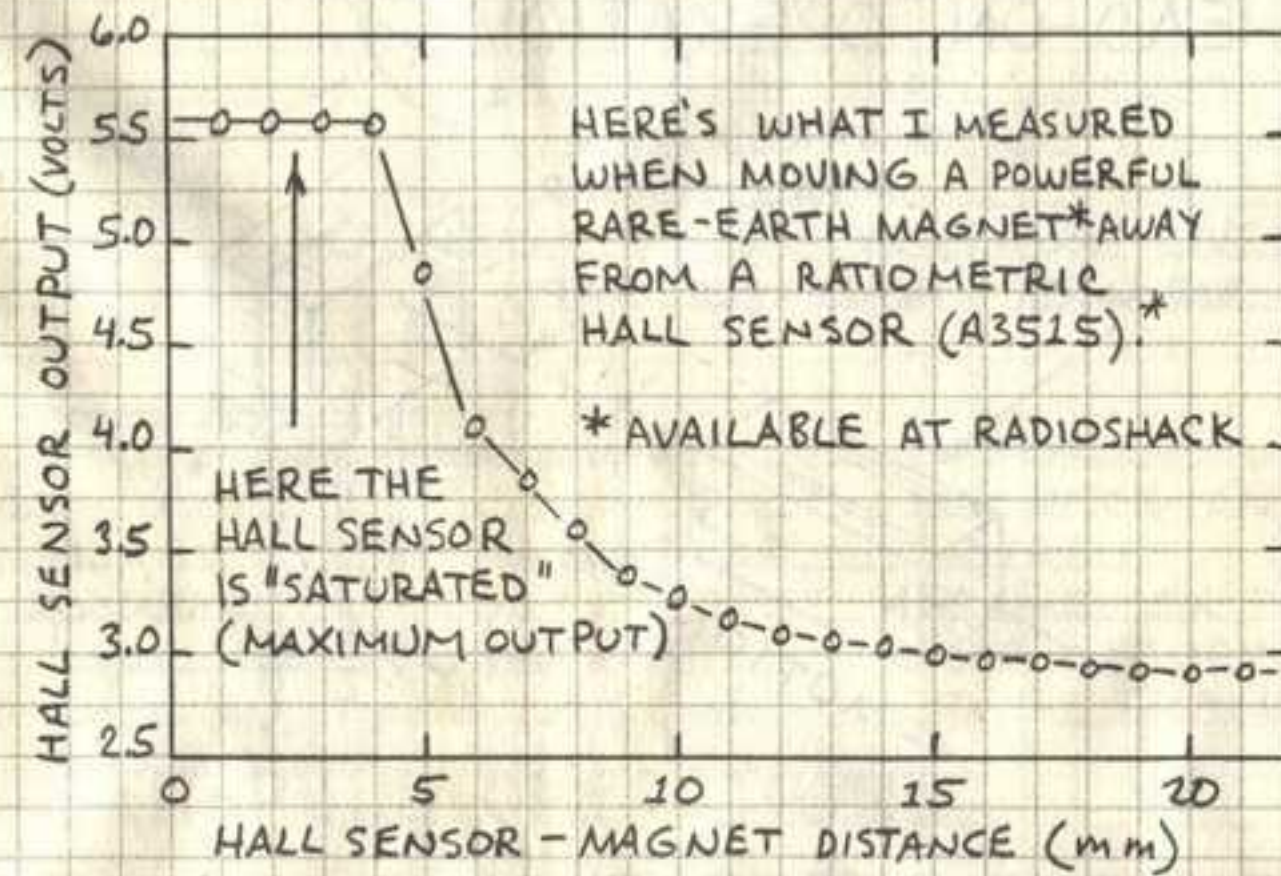 HALL SENSOR OUTPUT (VOLTS)
6.0
5.5
5.0
4.5
4.0
3.5
3.0
2.5
HERE'S WHAT I MEASURED
WHEN MOVING A POWERFUL
RARE-EARTH MAGNET* AWAY
FROM A RATIOMETRIC
HALL SENSOR (A3515).*
* AVAILABLE AT RADIOSHACK
HERE THE
HALL SENSOR
IS "SATURATED"
(MAXIMUM OUTPUT)
0 5 10 15 20
HALL SENSOR - MAGNET DISTANCE (mm)